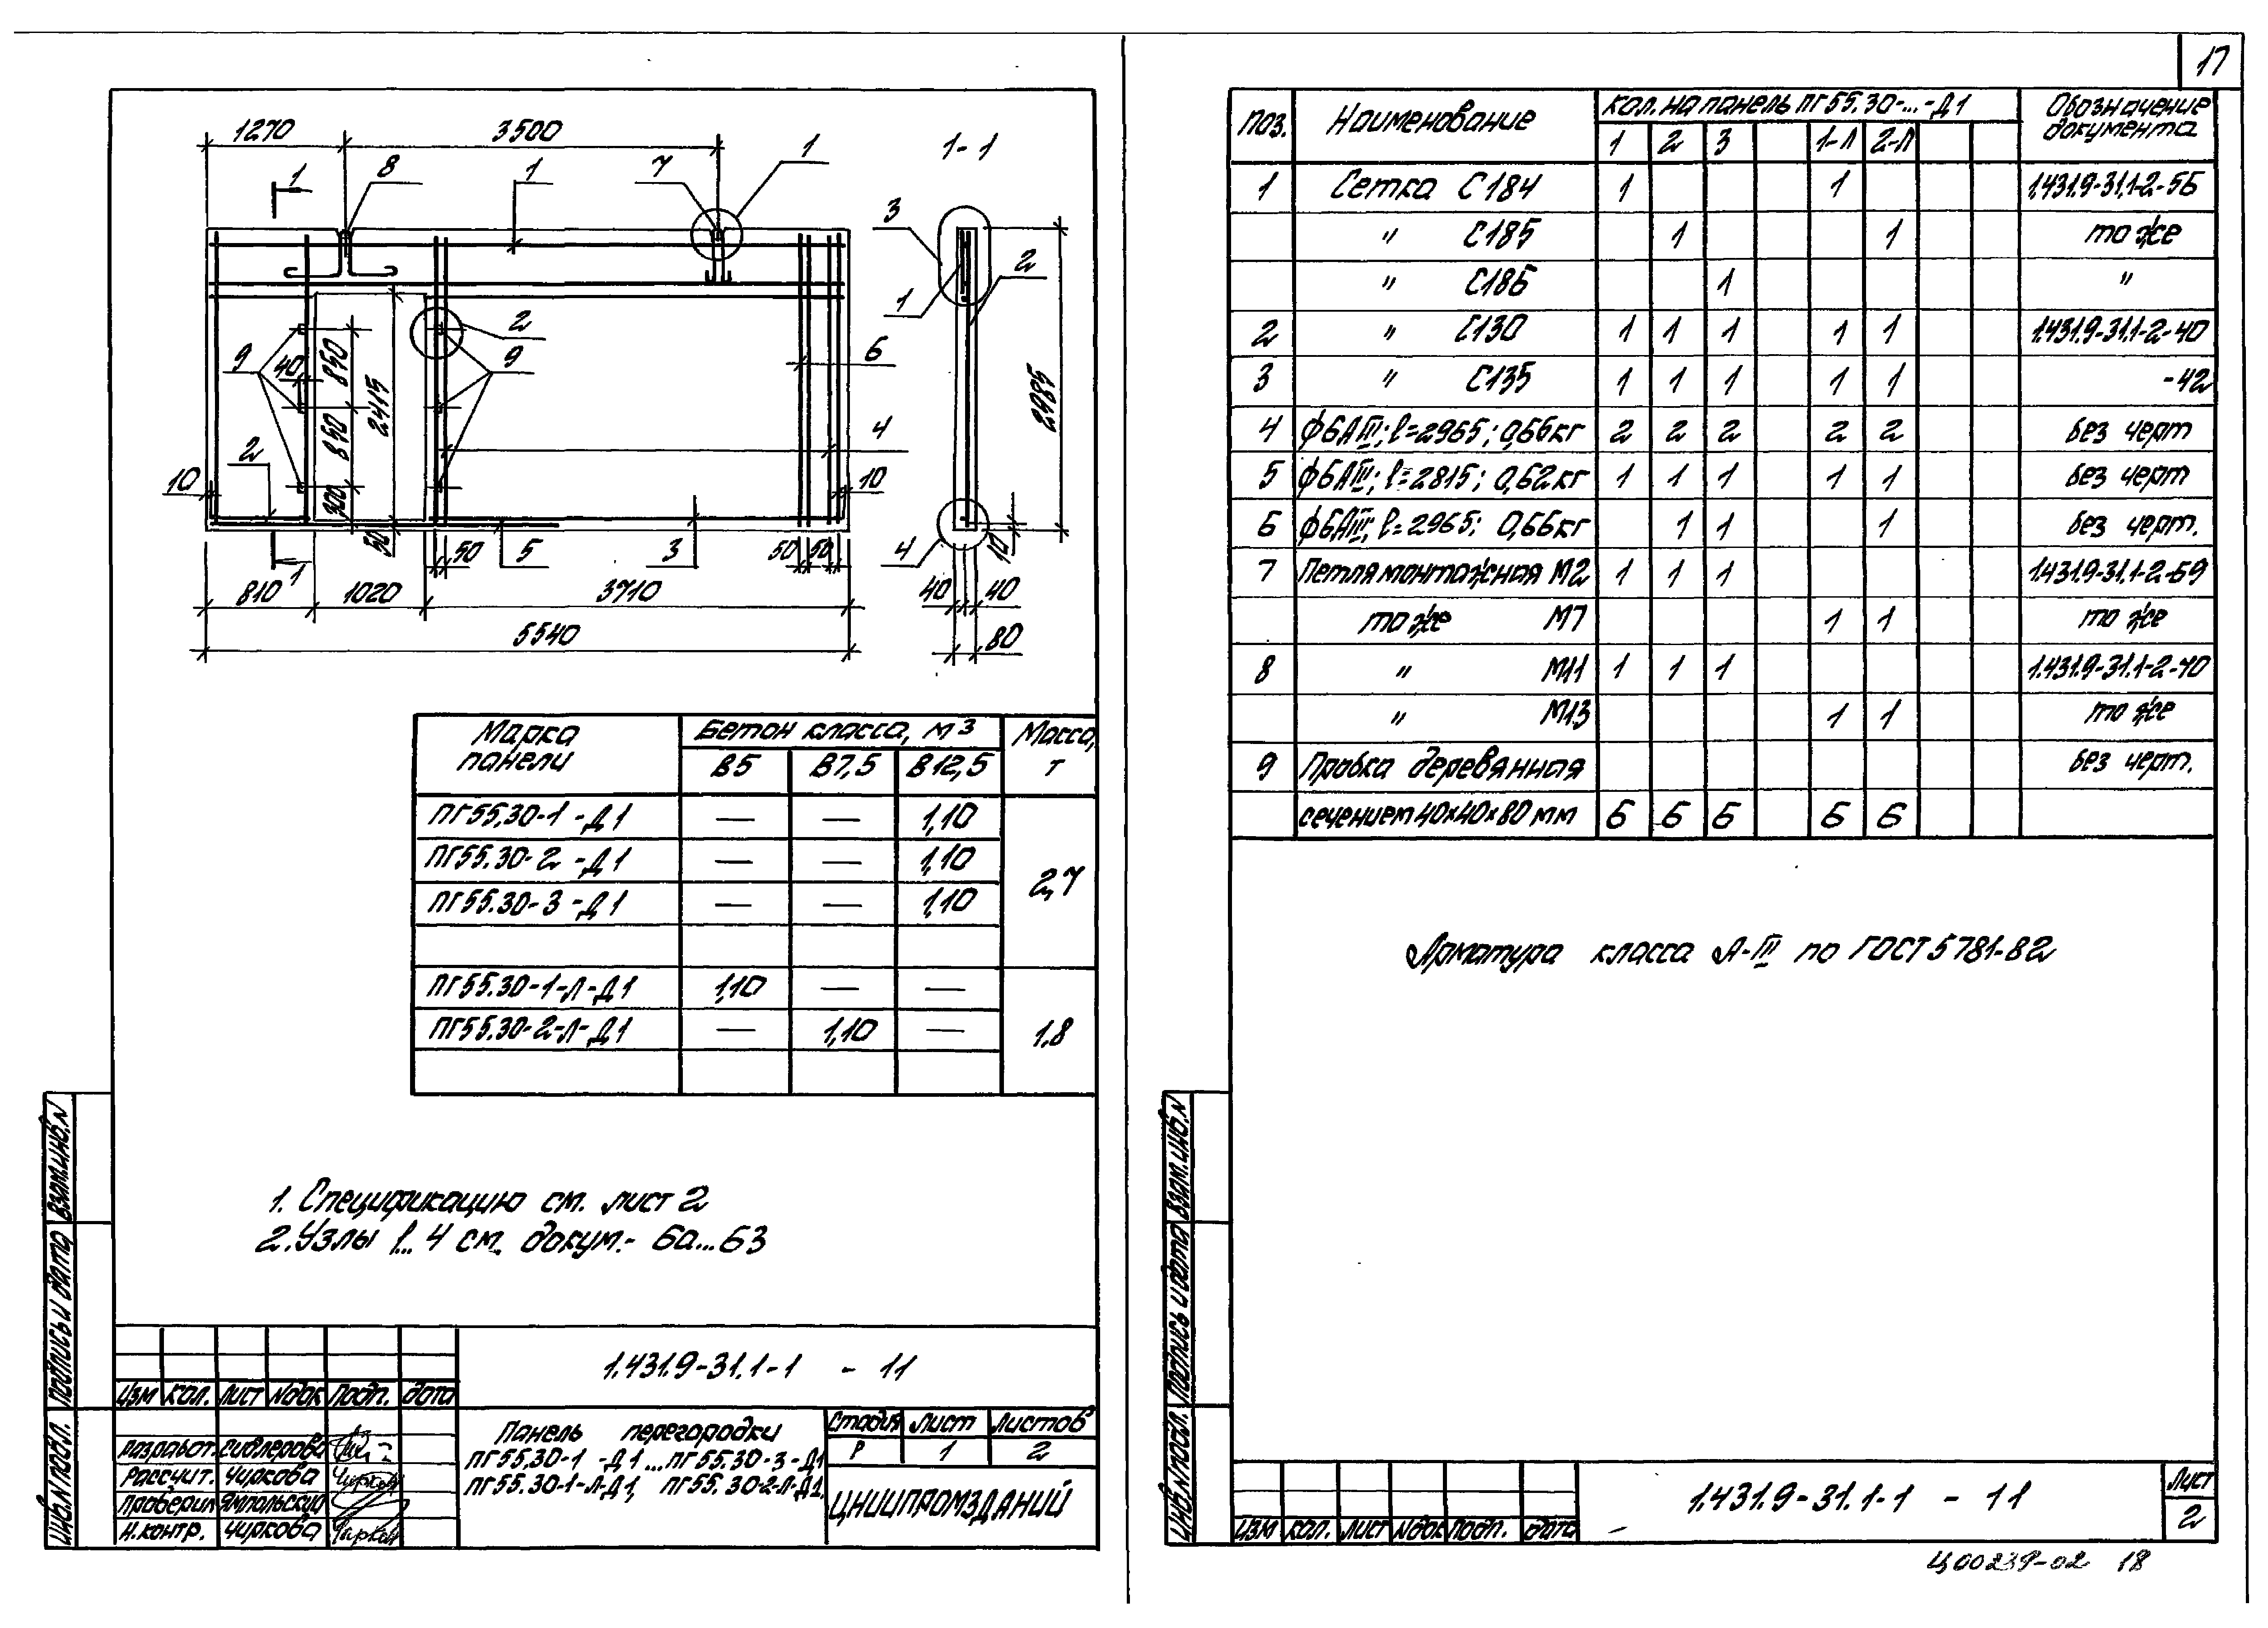 17
1270
3500
1
1-1
1
8
1
7
3
2
1
2985
2
9
40
850
850
300
2415
50
9
6
4
2
10
10
50
5
3
50
50
4
10
1
810
1020
3710
40
40
5540
80
Марка панели
Бетон класса, м3
Масса, т
В5
В7,5
В12,5
ПГ55.30-1 -Д1 — — 1,10
ПГ55.30-2 -Д1 — — 1,10
2,7
ПГ55.30-3 -Д1 — — 1,10
ПГ55.30-1-Л-Д1 1,10 — —
ПГ55.30-2-Л-Д1 — 1,10 —
1.8
1. Спецификацию см. лист 2
2. Узлы 1...4 см. докум.- 60...63
1.431.9-31.1-1 - 11
Изм Кол. Лист Nдок Подп. дата
Разработ.
Рассчит. Чиркова
Проверил Ямпольский
Н.контр. Чиркова
Панель перегородки
ПГ55.30-1 -Д1...ПГ55.30-3-Д1
ПГ55.30-1-Л-Д1, ПГ55.30-2-Л-Д1
Стадия Лист Листов
Р 1 2
ЦНИИПРОМЗДАНИЙ
Взам.инв.N
Подпись и дата
Инв.Nподл.
Поз. Наименование Кол. на панель ПГ55.30-...-Д1 Обозначение документа
1 2 3 1-Л 2-Л
1 Сетка С184 1 1 1.431.9-31.1-2-56
" С185 1 1 то же
" С186 1 "
2 " С130 1 1 1 1 1 1.431.9-31.1-2-40
3 " С135 1 1 1 1 1 -42
4 ф6АIII; l=2965; 0,66кг 2 2 2 2 2 без черт
5 ф6АIII; l=2815; 0,62кг 1 1 1 1 1 без черт
6 ф6АIII; l=2965; 0,66кг 1 1 1 без черт.
7 Петля монтажная М2 1 1 1 1.431.9-31.1-2-69
то же М7 1 1 то же
8 " М11 1 1 1 1.431.9-31.1-2-70
" М13 1 1 то же
9 Пробка деревянная без черт.
сечением 40х40х80 мм 6 6 6 6 6
Арматура класса А-III по ГОСТ 5781-82
Взам.инв.N
Подпись и дата
Инв.Nподл.
Изм Кол. Лист Nдок Подп. дата
1.431.9-31.1-1 - 11
Лист
2
Ц00239-02 18